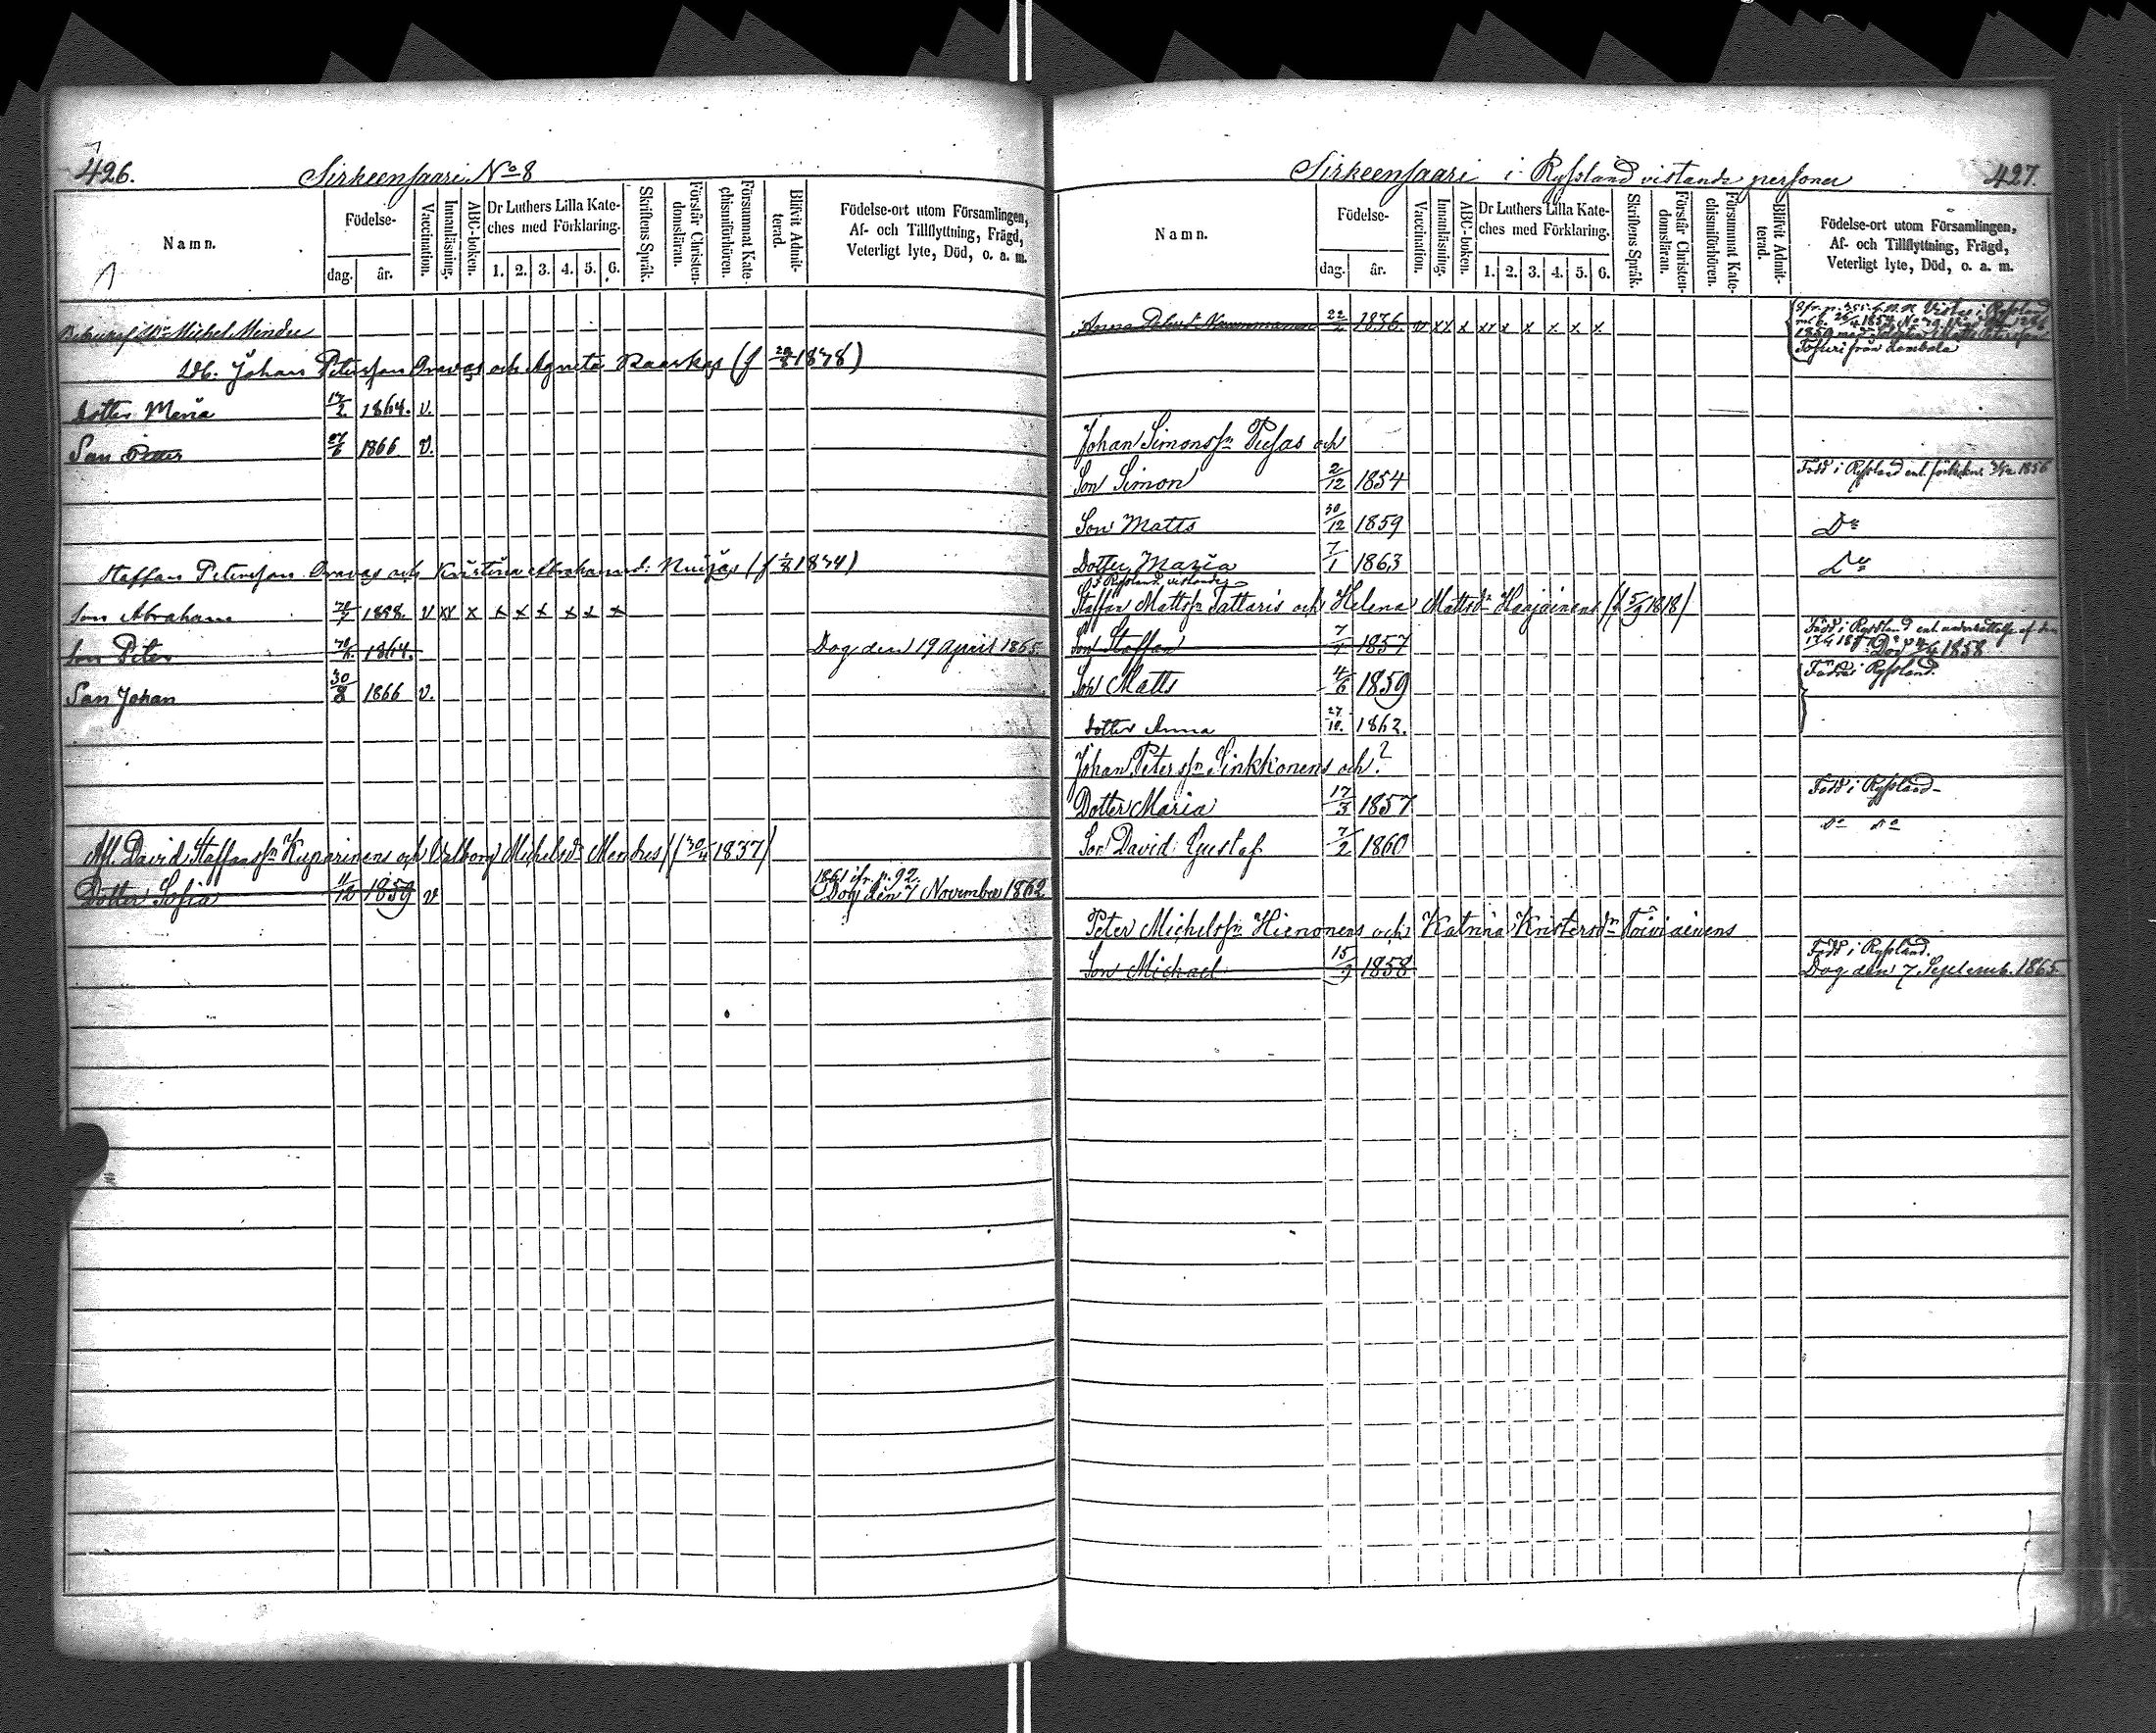 426.
Sirkeensaari No 8
Namn.
Födelse-
dag.
år.
Vaccination.
Innanläsning.
ABC-boken.
Dr Luthers Lilla Kate-
ches med Förklaring.
1. 2. 3. 4. 5. 6.
Skriftens Språk.
Förstår Christen-
domsläran.
Försummat Kate-
chismiförhören.
Blifvit Admit-
terad.
Födelse-ort utom Församlingen,
Af- och Tillflyttning, Frägd,
Veterligt lyte, Död, o. a. m.
Michel
Johan Petersson Oravas och Agneta Kaarkas (f 1848)
Dotter Maria 17/2 1864. v.
Son Petter 1866 v.
Staffan Petersson Oravas och Kristina Abrahamsd: (f 1/8 1834)
Son Abraham 1858. v xx x x x x x x x
Son Peter 1864. Dog den 19 April 1865.
Son Johan 30/8 1866 v.
David Staffanssn Kuparinens och Valborg Michelsdr Mendres (30/4 1837)
1861 p. 92.
Dotter Sofia 11/12 1859 v Dog den 7 November 1862
Sirkeensaari i Ryssland vistande personer
427.
Namn.
Födelse-
dag.
år.
Vaccination.
Innanläsning.
ABC-boken.
Dr Luthers Lilla Kate-
ches med Förklaring.
1. 2. 3. 4. 5. 6.
Skriftens Språk.
Förstår Christen-
domsläran.
Försummat Kate-
chismiförhören.
Blifvit Admit-
terad.
Födelse-ort utom Församlingen,
Af- och Tillflyttning, Frägd,
Veterligt lyte, Död, o. a. m.
Anna 1836. v xx x xx x x x x x
från
Johan Simonssn Pusas och
Son Simon 2/12 1854 Född i Ryssland enl. 1856
Son Matts 30/12 1859 Do
Dotter Maria 7/1 1863 Do
i Ryssland vistandes
Staffan Mattssn Tattaris och Helena Mattsdr Haajainens (f 5/9 1818)
Son Staffan 1857 Född i Ryssland enl. underrättelse af den
Dog 1858
Son Matts 4/6 1859 Födda i Ryssland.
Dotter Anna 27/10. 1862.
Johan Peterssn Sinkkonens och ?
Dotter Maria 17/3 1857 Född i Ryssland
Son David Gustaf 7/2 1860 Do Do
Peter Michelssn Hienonens och Katrina Kristersdr Toiviainens
Son Michael 15/9 1858 Född i Ryssland.
Dog den 7 Septemb. 1865.